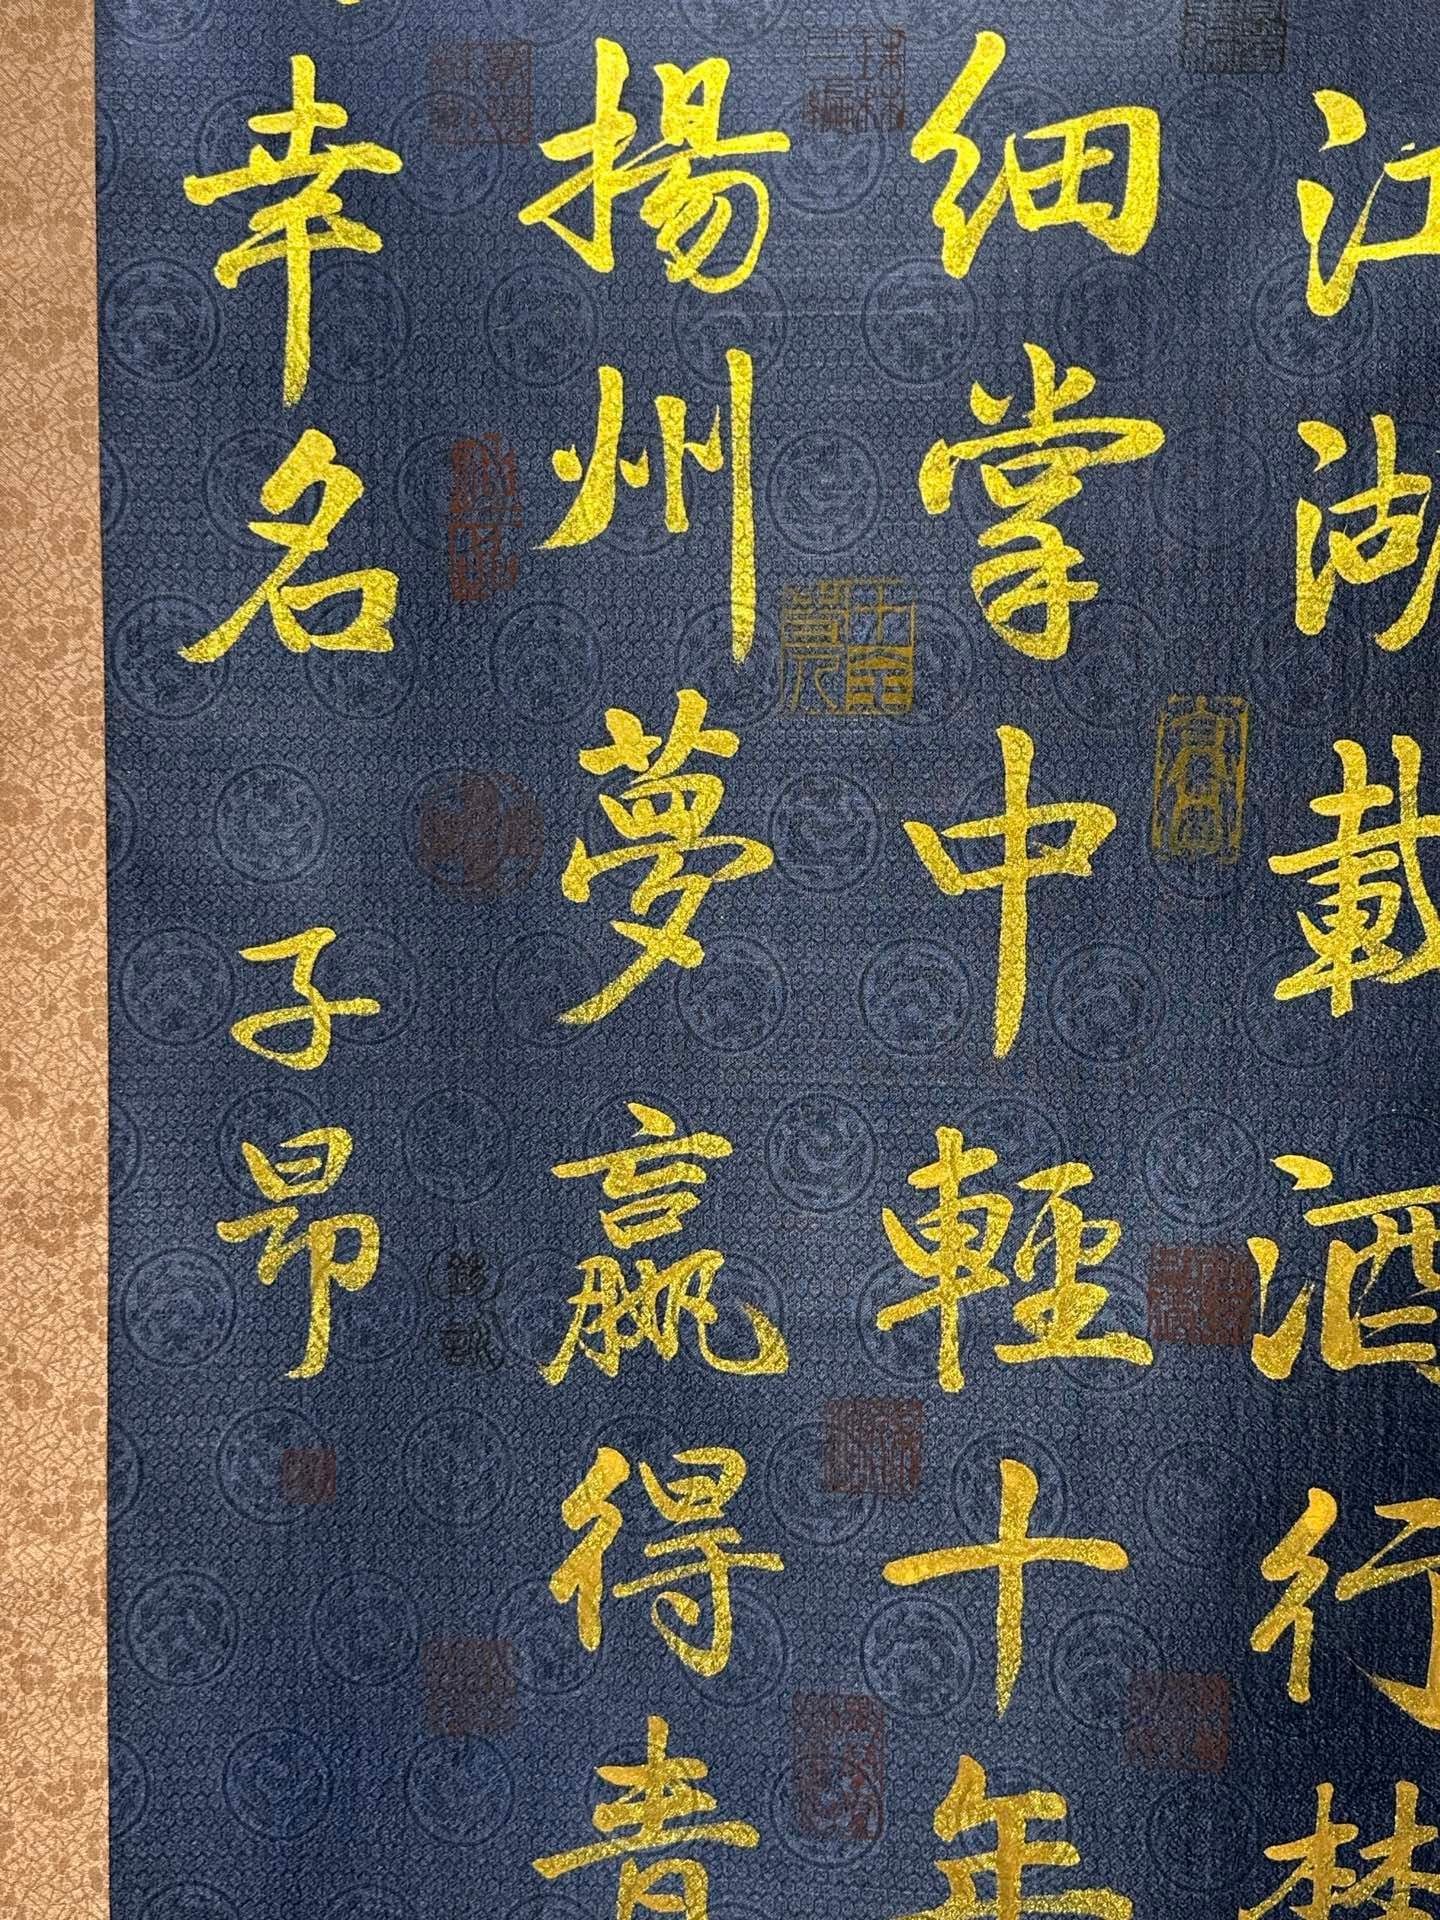 江湖載酒行楚
細掌中輕十年
揚州夢贏得青
幸名
子昂